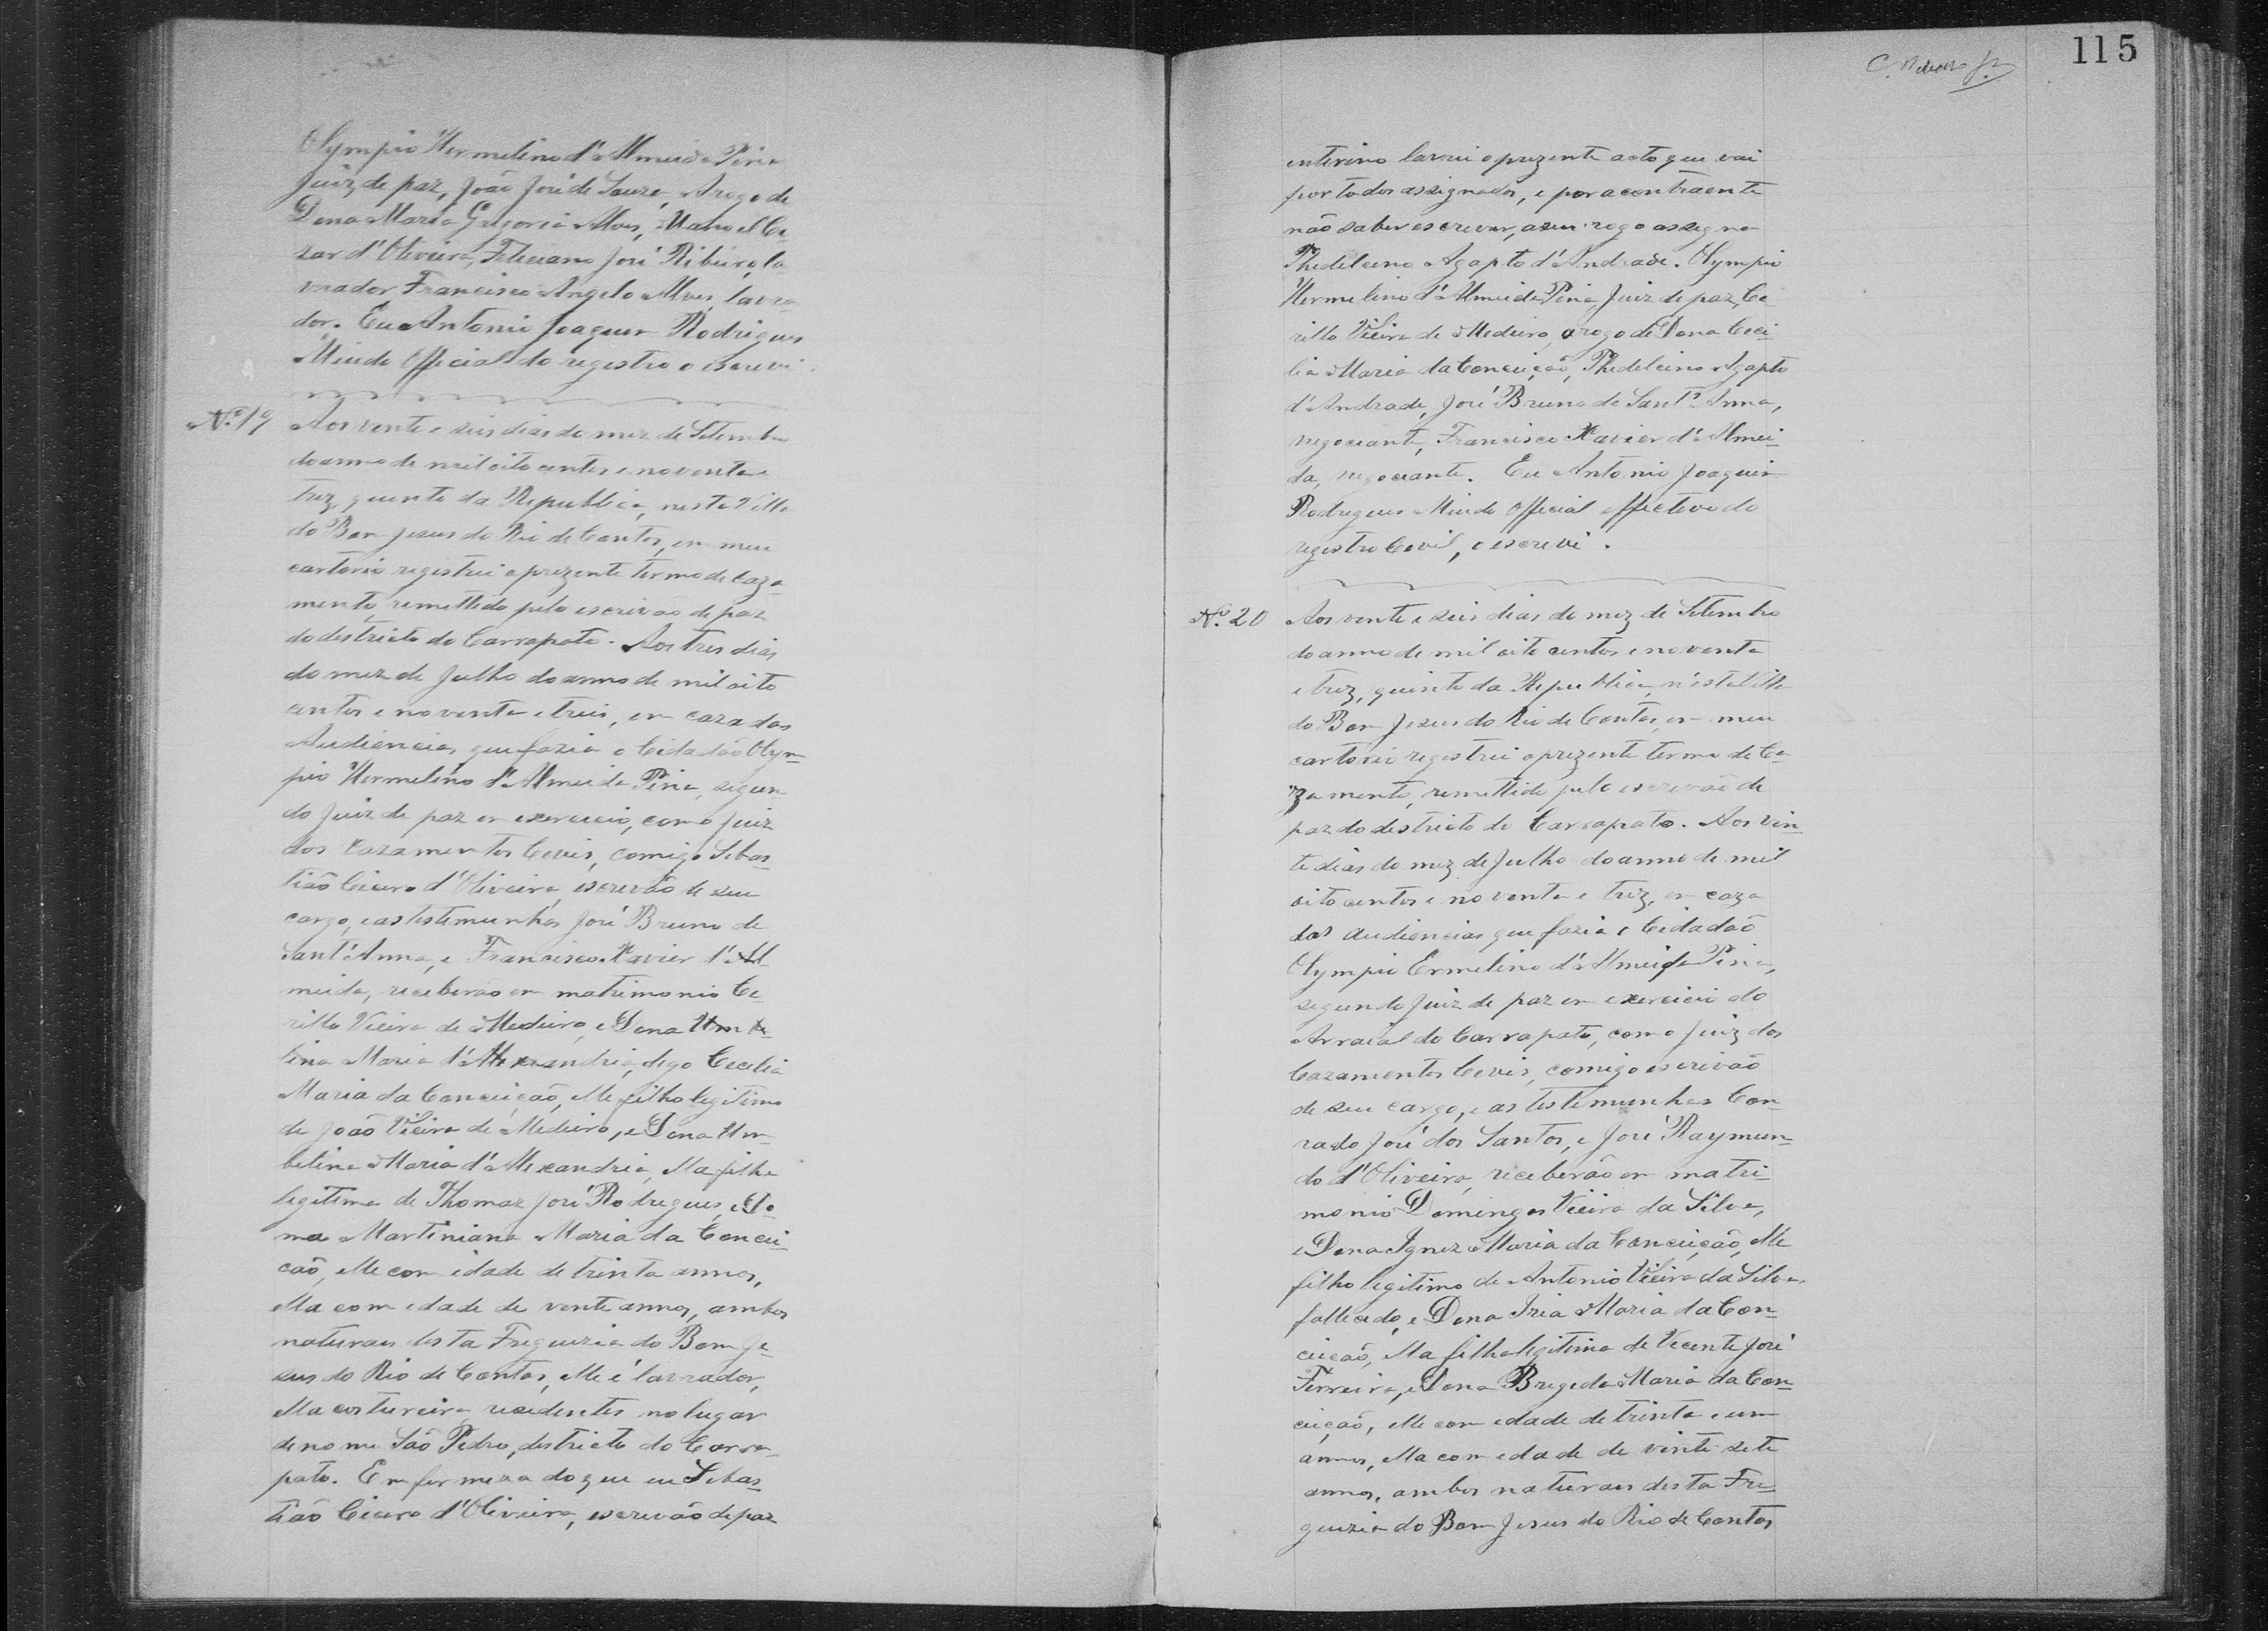 Olympio Hermelino d'Almeida Pina
Juiz de paz, João José de Souza, Arogo de
Dona Maria Gregoria Alves, Manoel Ce-
zar d'Oliveira, Feliciano José Ribeiro, la
vrador, Francisco Angelo Alves, lavra
dor. Eu Antonio Joaquim Rodrigues
Official do registro o escrevi.
Nº 19 Aos vente e seis dias do mez de Setembro
do anno de mil oito centos e noventa e
trez, quinto da Republica, nesta Villa
do Bom Jesus do Rio de Contas, em meu
cartorio registrei o prezente termo de Caza-
mento, remettido pelo escrivão de paz
do destricto do Carrapato. Aos tres dias
do mez de Julho do anno de mil oito
centos e noventa e treis, em caza das
Audiencias, que fazia o Cidadão Olym-
pio Hermelino d'Almeida Pina, segun-
do Juiz de paz em exercicio, como Juiz
dos Cazamentos Cevis, comigo Sebas
tião Cicero d'Oliveira, escrevão de seu
cargo, e as testemunhas José Bruno de
Sant'Anna, e Francisco Xavier d'Al
meida, receberão em matrimonio Ce-
rillo Vieira de Medeiro, e Dona Umbe-
lina Maria d'Alexandria, digo Cecilia
Maria da Conceição, elle filho legitimo
de João Vieira de Medeiro, e Dona Um-
belina Maria d'Alexandria, ella filha
legitima de Thomaz José Rodrigues, e Do-
na Martiniana Maria da Concei-
cão, elle com idade de trinta annos,
ella com edade de vente annos, ambos
naturaes desta Freguezia do Bom Je-
sus do Rio de Contas, elle é lavrador,
ella costureira, recidentes no lugar
de nome São Pedro, destricto do Carra-
pato. Em fermeza do que eu Sebas-
tião Cicero d'Oliveira, escrevão de paz
115
enterino lavrei o prezente acto que vai
por todos assignados, e por a contraente
não saber escrever, a seu rogo assegna
Phedelcino Agapto d'Andrade. Olympio
Hermelino d'Almeida Pina Juiz de paz, Ce
rillo Vieira de Medeiro, arogo de Dona Ceci-
lia Maria da Conceição, Phedelcino Agapto
d'Andrade, José Bruno de Sant'Anna,
negociante, Francisco Xavier d'Almei-
da, negociante. Eu Antonio Joaquim
Rodrigues Official effectivo do
registro Cevil, o escrevi.
Nº 20 Aos vente e seis dias do mez de Setembro
do anno de mil oito centos e noventa
e trez, quinto da Republica, n'esta Villa
do Bom Jesus do Rio de Contas, em meu
cartorio registrei o prezente termo de Ca-
zamento, remettido pelo escrevão de
paz do destricto do Carrapato. Aos vin
te dias do mez de Julho do anno de mil
oito centos e noventa e trez, em caza
das Audiencias que fazia o Cidadão
Olympio Ermelino d'Almeida Pina,
segundo Juiz de paz em exercicio do
Arraial do Carrapato, como Juiz dos
Cazamentos Cevis, comigo escrivão
de seu cargo, e as testemunhas Con-
rado José dos Santos, e José Raymun-
do d'Oliveira, receberão em matri-
monio Domingos Vieira da Silva,
e Dona Ignez Maria da Conceição, elle
filho legitimo de Antonio Vieira da Silva,
fallecido, e Dona Iria Maria da Con-
ceicão, ella filha legitima de Vicente José
Ferreira, e Dona Bregeda Maria da Con-
ceição, elle com edade de trinta e um
annos, ella com edade de vinte sete
annos, ambos naturaes desta Fre-
guezia do Bom Jesus do Rio de Contas